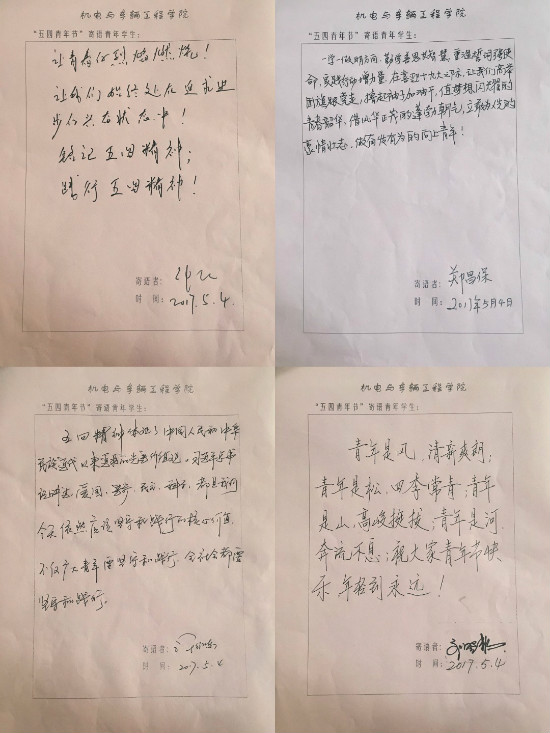 机电与车辆工程学院
“五四青年节”寄语青年学生：
让青春的烈焰燃烧！
让我们始终处在追求进
步的状态中！
铭记五四精神；
践行五四精神！
寄语者：
时 间：2017.5.4.
机电与车辆工程学院
“五四青年节”寄语青年学生：
一学一做明方向，勤学善思长智慧，重温誓词强使
命，实践行动增力量。在喜迎十九大之际，让我们高举
团旗跟党走，撸起袖子加油干，值梦想闪光耀的
青春韶华，借风华正茂的蓬勃朝气，立敢为人先的
豪情壮志，做奋发有为的向上青年！
寄语者：郑昌保
时 间：2017年5月4日
机电与车辆工程学院
“五四青年节”寄语青年学生：
五四精神体现了中国人民和中华
民族近代以来追求的先进价值观。习近平总书
记讲过，爱国、进步、民主、科学，都是我们
今天依然应该坚守和践行的核心价值，
不仅广大青年要坚守和践行，全社会都要
坚守和践行。
寄语者：
时 间：2017.5.4
机电与车辆工程学院
“五四青年节”寄语青年学生：
青年是风，清新爽朗；
青年是松，四季常青；青年
是山，高峻挺拔；青年是河，
奔流不息；祝大家青年节快
乐 年轻到永远！
寄语者：
时 间：2017.5.4